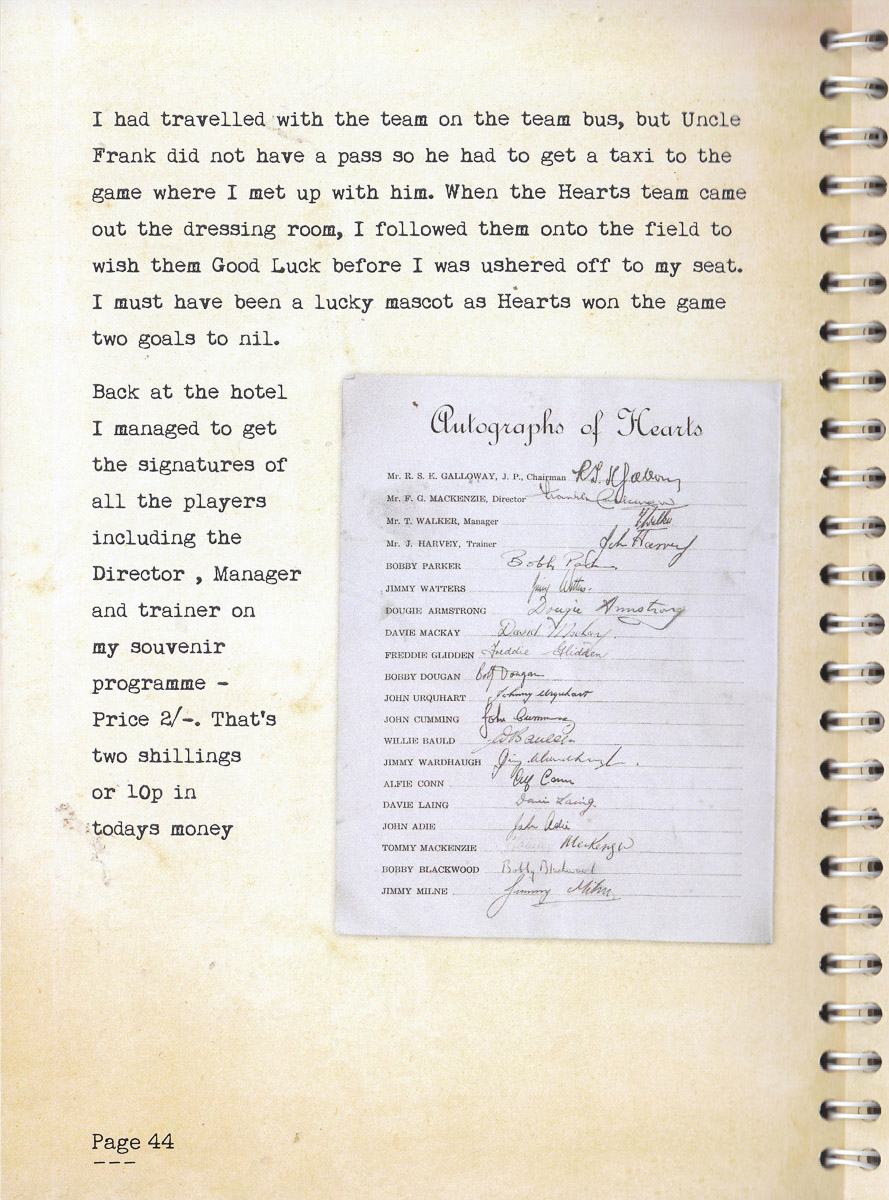 I had travelled with the team on the team bus, but Uncle
Frank did not have a pass so he had to get a taxi to the
game where I met up with him. When the Hearts team came
out the dressing room, I followed them onto the field to
wish them Good Luck before I was ushered off to my seat.
I must have been a lucky mascot as Hearts won the game
two goals to nil.
Back at the hotel
I managed to get
the signatures of
all the players
including the
Director , Manager
and trainer on
my souvenir
programme -
Price 2/-. That's
two shillings
or 10p in
todays money
Autographs of Hearts
Mr. R. S. K. GALLOWAY, J. P., Chairman
Mr. F. G. MACKENZIE, Director
Mr. T. WALKER, Manager
Mr. J. HARVEY, Trainer John Harvey
BOBBY PARKER Bobby Parker
JIMMY WATTERS Jimmy Watters
DOUGIE ARMSTRONG Dougie Armstrong
DAVIE MACKAY David Mackay
FREDDIE GLIDDEN Freddie Glidden
BOBBY DOUGAN Bob Dougan
JOHN URQUHART Johnny Urquhart
JOHN CUMMING John Cumming
WILLIE BAULD W Bauld
JIMMY WARDHAUGH Jimmy Wardhaugh
ALFIE CONN Alf Conn
DAVIE LAING Davie Laing
JOHN ADIE John Adie
TOMMY MACKENZIE Mackenzie
BOBBY BLACKWOOD Bobby Blackwood
JIMMY MILNE Jimmy Milne
Page 44